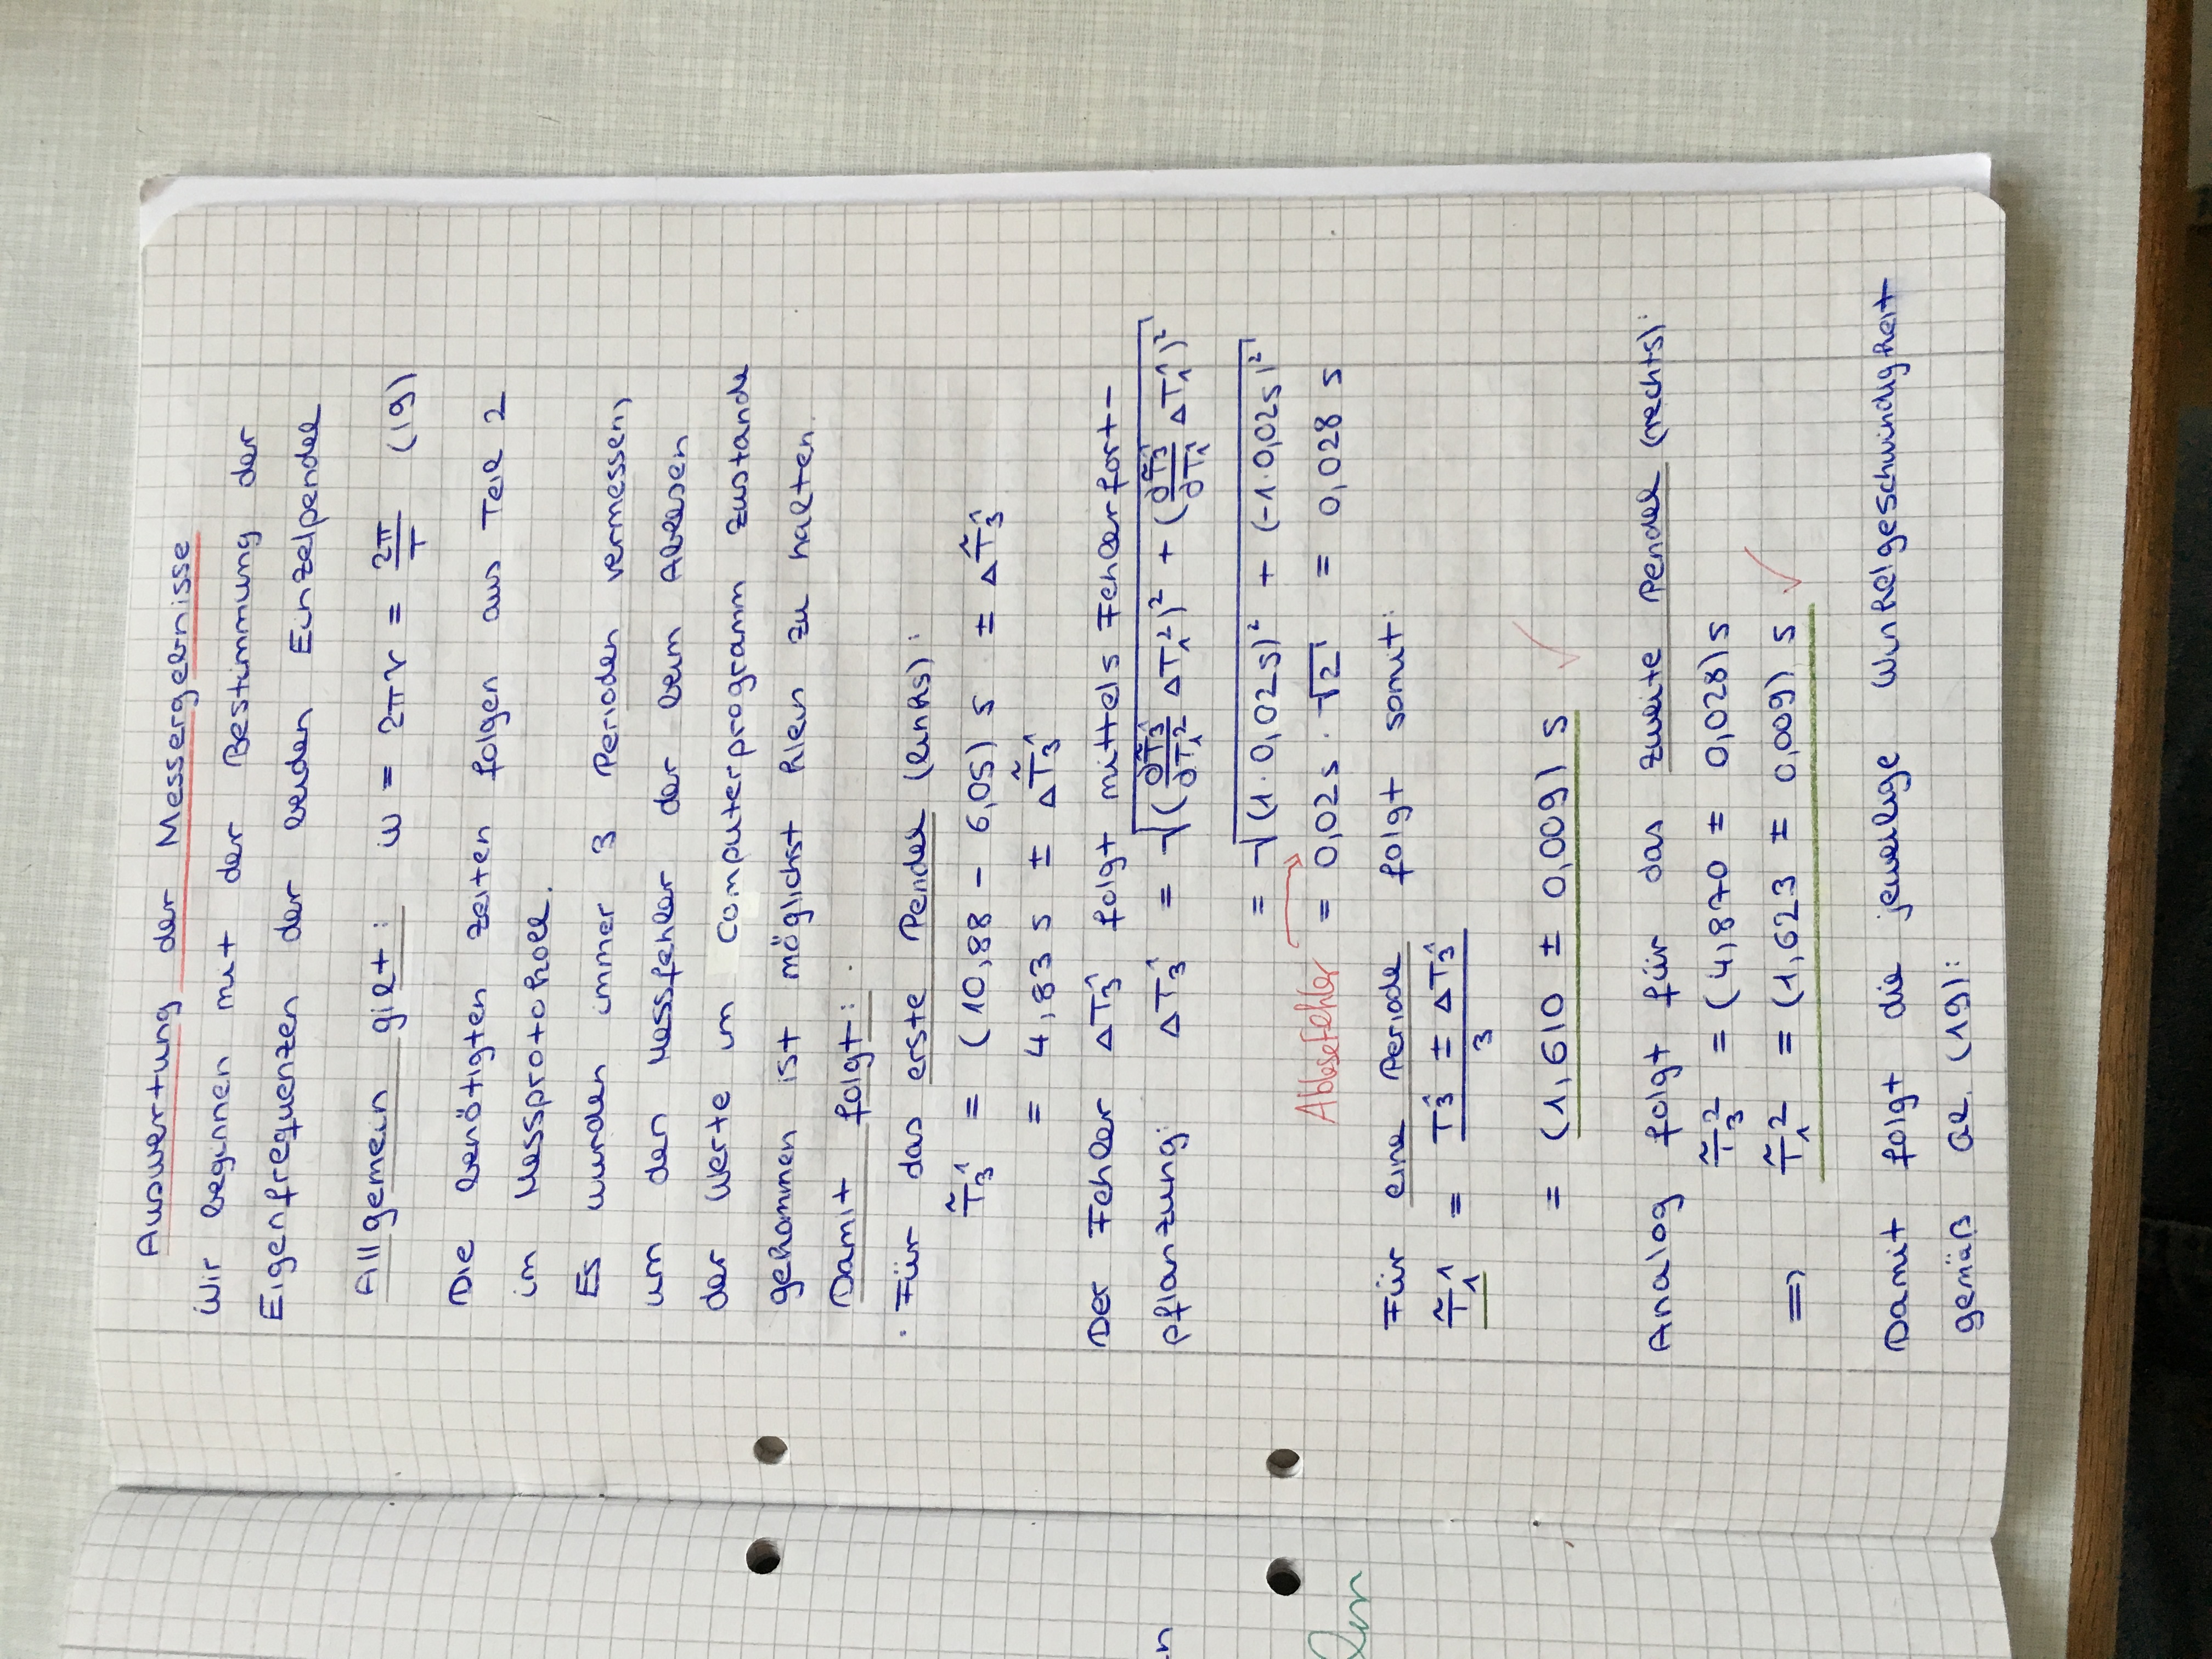 Auswertung der Messergebnisse
Wir beginnen mit der Bestimmung der
Eigenfrequenzen der beiden Einzelpendel
Allgemein gilt: ω = 2πν = 2π/T (19)
Die benötigten Zeiten folgen aus Teil 2
im Messprotokoll.
Es wurden immer 3 Perioden vermessen,
um den Messfehler der beim Ablesen
der Werte im Computerprogramm zustande
gekommen ist möglichst klein zu halten.
Damit folgt:
· Für das erste Pendel (links):
T̃₃¹ = (10,88 - 6,05) s ± ΔT̃₃¹
= 4,83 s ± ΔT̃₃¹
Der Fehler ΔT₃¹ folgt mittels Fehlerfort-
pflanzung: ΔT₃¹ = √((∂T̃₃¹/∂T₁² ΔT₁²)² + (∂T̃₃¹/∂T₁¹ ΔT₁¹)²)
= √((1·0,02s)² + (-1·0,02s)²)
Ablesefehler = 0,02s · √2 = 0,028 s
Für eine Periode folgt somit:
T̃₁¹ = (T₃¹ ± ΔT₃¹)/3
= (1,610 ± 0,009) s ✓
Analog folgt für das zweite Pendel (rechts):
T̃₃² = (4,870 ± 0,028) s
⇒ T̃₁² = (1,623 ± 0,009) s ✓
Damit folgt die jeweilige Winkelgeschwindigkeit
gemäß Gl. (19):